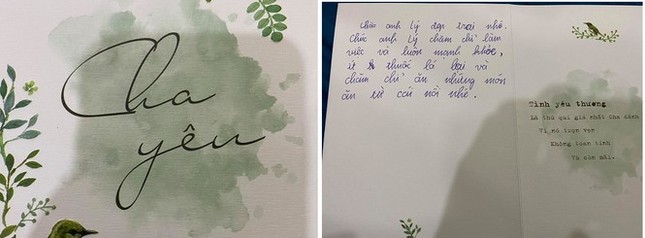 Cha
yêu
Chào anh Lý đẹp trai nhé.
Chúc anh Lý chăm chỉ làm
việc và luôn mạnh khỏe,
ít thuốc lá lại và
chăm chỉ ăn những món
ăn từ cái nồi nhé.
Tình yêu thương
Là thứ quí giá nhất Cha dành
Vì nó trọn vẹn
Không toan tính
Và còn mãi.